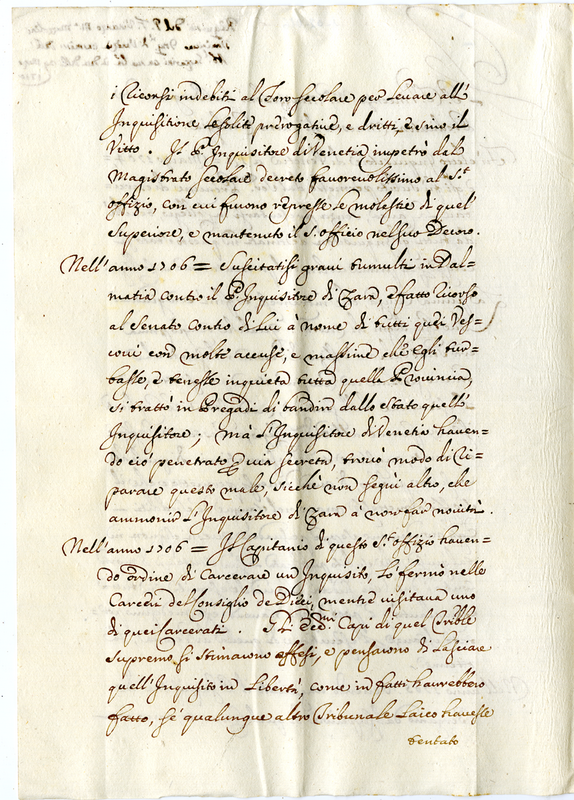 i Ricorsi indebiti al Foro secolare per levare all'
Inquisitione le solite prerogative, e dritti, e sino il
Vitto. Il P. Inquisitore di Venetia impetrò dal
Magistrato secolare decreto favorevolissimo al S.t
offizio, con cui furono represse le molestie di quel
Superiore, e mantenuto il S. officio nel suo Decoro.
Nell'anno 1706 = Suscitatisi gravi tumulti in Dal=
matia contro il P. Inquisitore di Zara, e fatto Ricorso
al Senato contro di Lui à nome di tutti quei Ves=
covi con molte accuse, e massime che egli tur=
basse, e tenesse inquieta tutta quella Provincia,
si trattò in Pregadi di bandire dallo stato quell'
Inquisitore; mà l'Inquisitore di Venetia haven=
do ciò penetrato p via secreta, trovò modo di Ri=
parare questo male, sicchè non seguì altro, che
ammonir l'Inquisitore di Zara à non far novità.
Nell'anno 1706 = Il Capitanio di questo S.t offizio haven=
do ordine di Carcerare un Inquisito, lo fermò nelle
Carceri del Consiglio de Dieci, mentre visitava uno
di quei Carcerati. Gl' Ecc.mi Capi di quel Trib.le
supremo si stimarono offesi, e pensarono di lasciare
quell'Inquisito in Libertà, come in fatti haurebbero
fatto, sé qualunque altro Tribunale Laico havesse
tentato